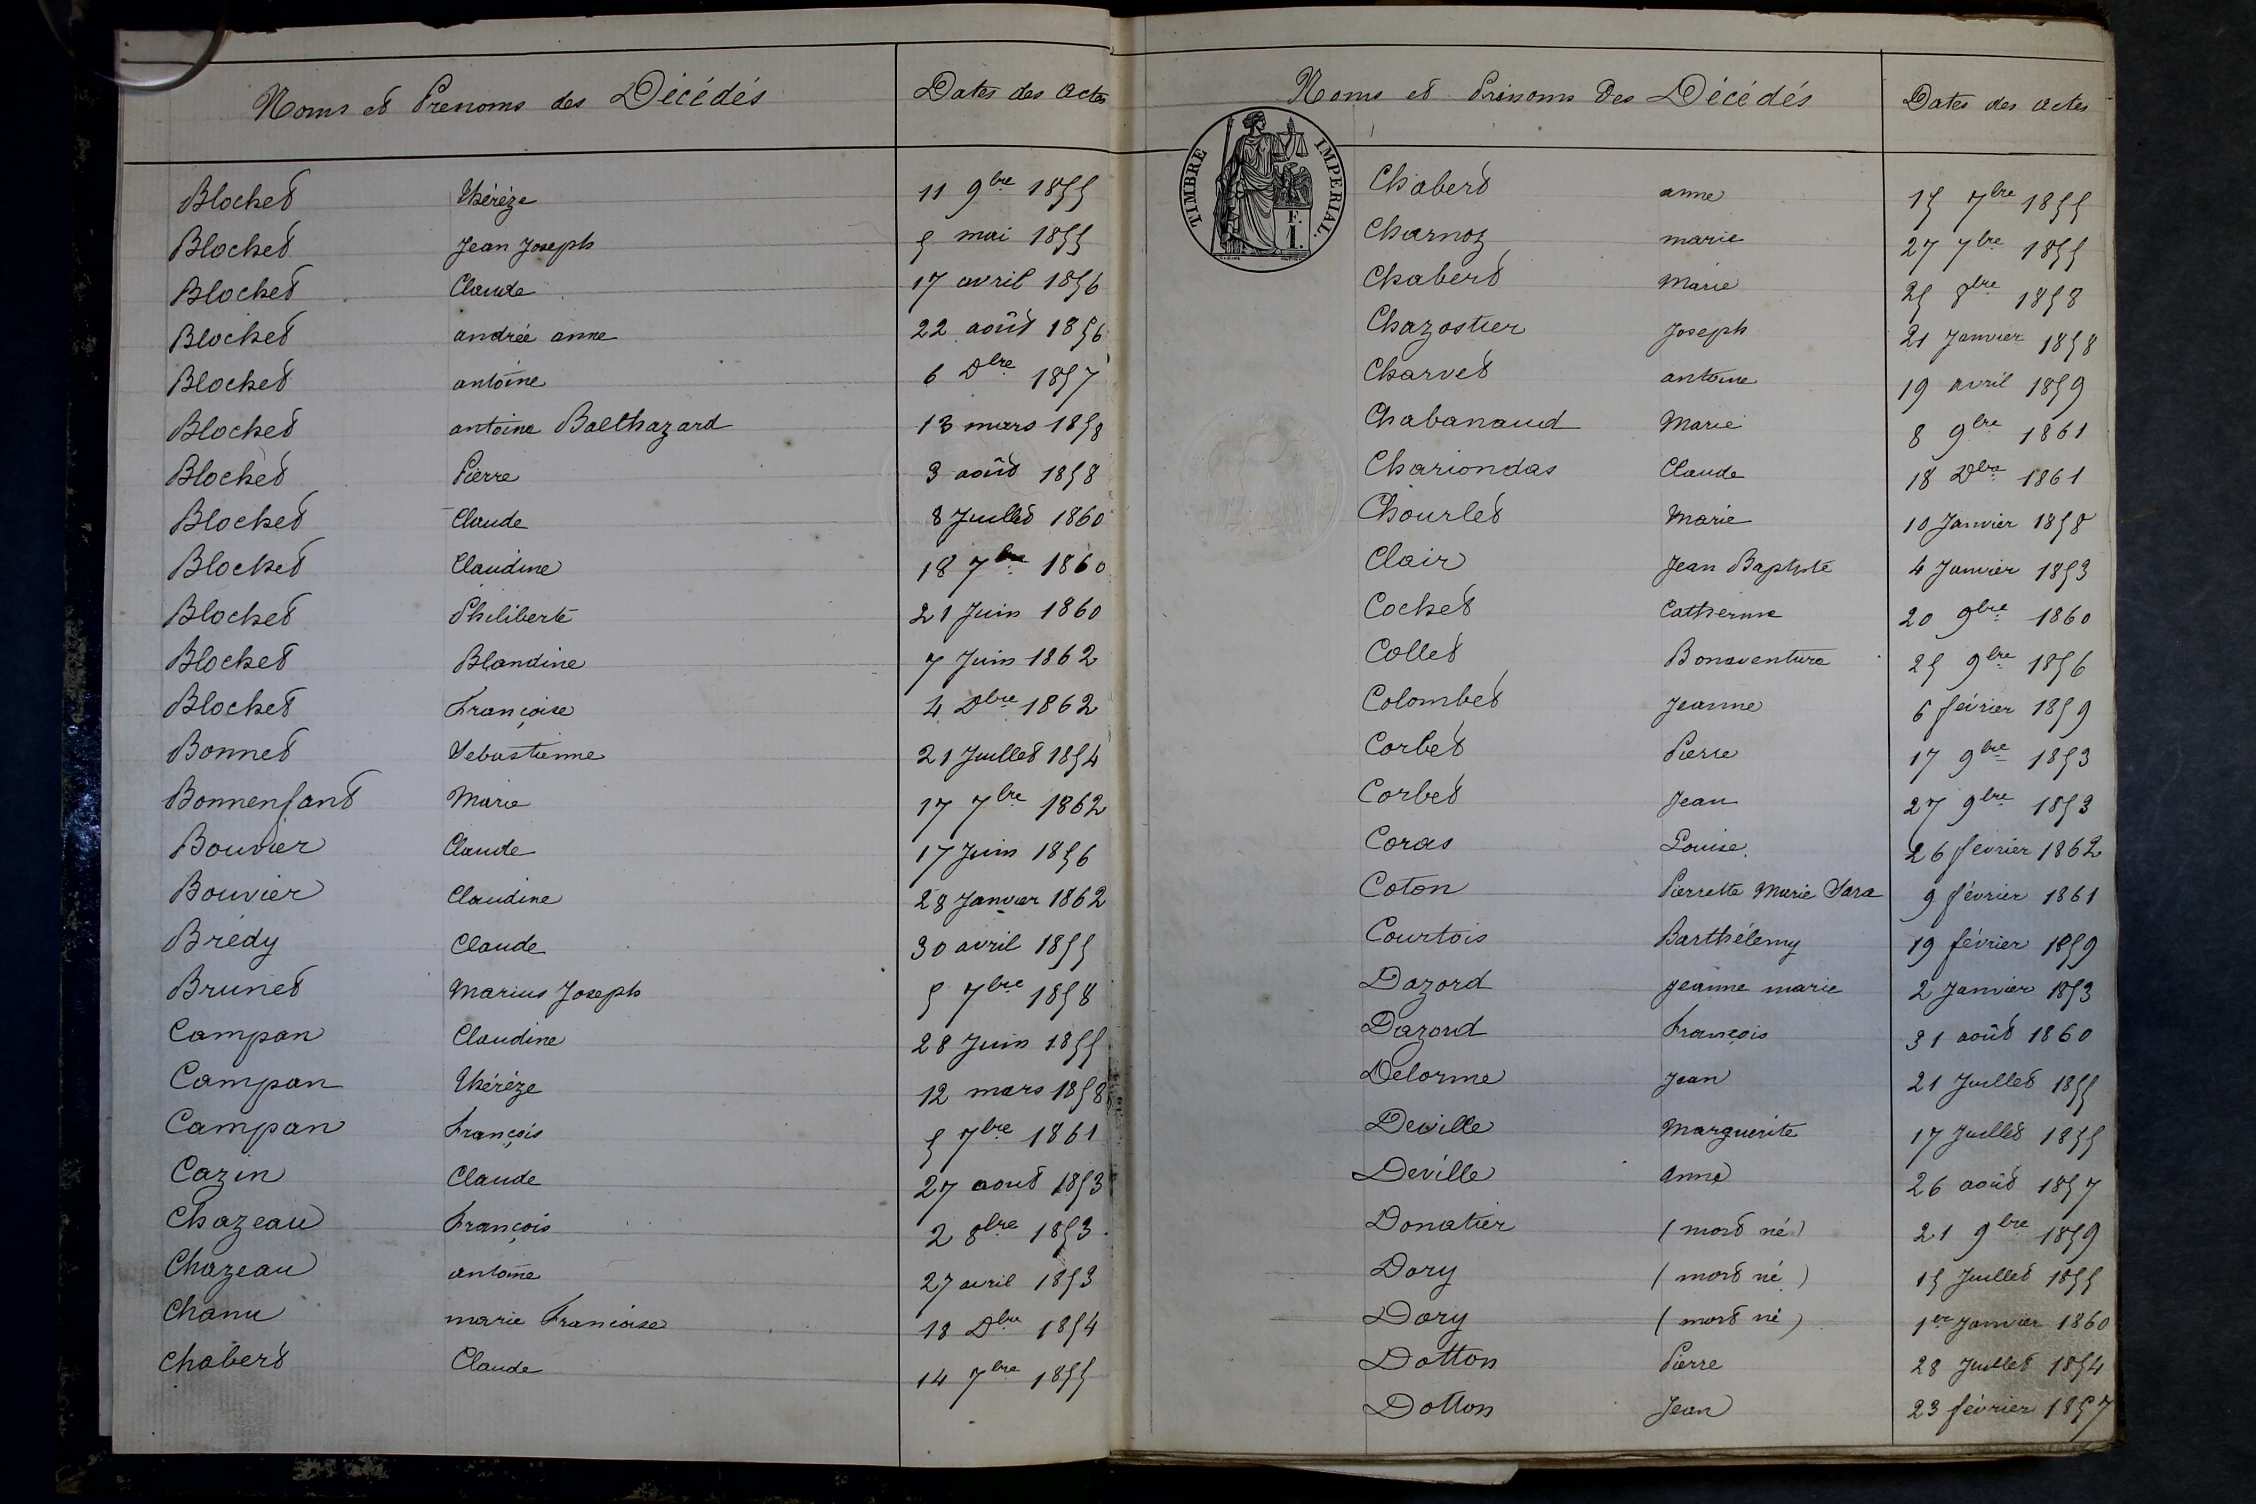 Noms et Prenoms des Décédés Dates des actes
Blochet Thérèze 11 9bre 1855
Blochet Jean Joseph 5 mai 1855
Blochet Claude 17 avril 1856
Blochet andrée anne 22 août 1856
Blochet antoine 6 Dbre 1857
Blochet antoine Balthazard 13 mars 1858
Blochet Pierre 3 août 1858
Blochet Claude 8 Juillet 1860
Blochet Claudine 18 7bre 1860
Blochet Philiberte 21 Juin 1860
Blochet Blandine 7 Juin 1862
Blochet Françoise 4 Dbre 1862
Bonnet Sebastienne 21 Juillet 1854
Bonnenfant Marie 17 7bre 1862
Bouvier Claude 17 Juin 1856
Bouvier Claudine 28 Janvier 1862
Brédy Claude 30 avril 1855
Brunet Marius Joseph 5 7bre 1858
Campan Claudine 28 Juin 1855
Campan Thérèze 12 mars 1858
Campan François 5 7bre 1861
Cazin Claude 27 aout 1853
Chazeau François 2 8bre 1853
Chazeau antoine 27 avril 1853
Chanu marie Francoise 18 Dbre 1854
Chabert Claude 14 7bre 1855
Noms et Prénoms Des Décédés Dates des actes
TIMBRE IMPERIAL.
E.
I.
Chabert anne 15 7bre 1855
Charnoz marie 27 7bre 1855
Chabert Marie 25 8bre 1858
Chazostier Joseph 21 Janvier 1858
Charvet antoine 19 avril 1859
Chabanaud Marie 8 9bre 1861
Chariondas Claude 18 Dbre 1861
Chourlet Marie 10 Janvier 1858
Clair Jean Baptiste 4 Janvier 1853
Cochet Catherine 20 9bre 1860
Collet Bonaventure 25 9bre 1856
Colombet Jeanne 6 février 1859
Corbet Pierre 17 9bre 1853
Corbet Jean 27 9bre 1853
Coras Louise 26 fevrier 1862
Coton Pierrette Marie Sara 9 février 1861
Courtois Barthélemy 19 février 1859
Dazord Jeanne marie 2 Janvier 1853
Dazord François 31 août 1860
Delorme Jean 21 Juillet 1855
Deville Marguerite 17 Juillet 1855
Deville anne 26 août 1857
Donatier (mort né) 21 9bre 1859
Dory (mort né) 15 Juillet 1855
Dory (mort né) 1er Janvier 1860
Dotton Pierre 28 Juillet 1854
Dotton Jean 23 février 1857